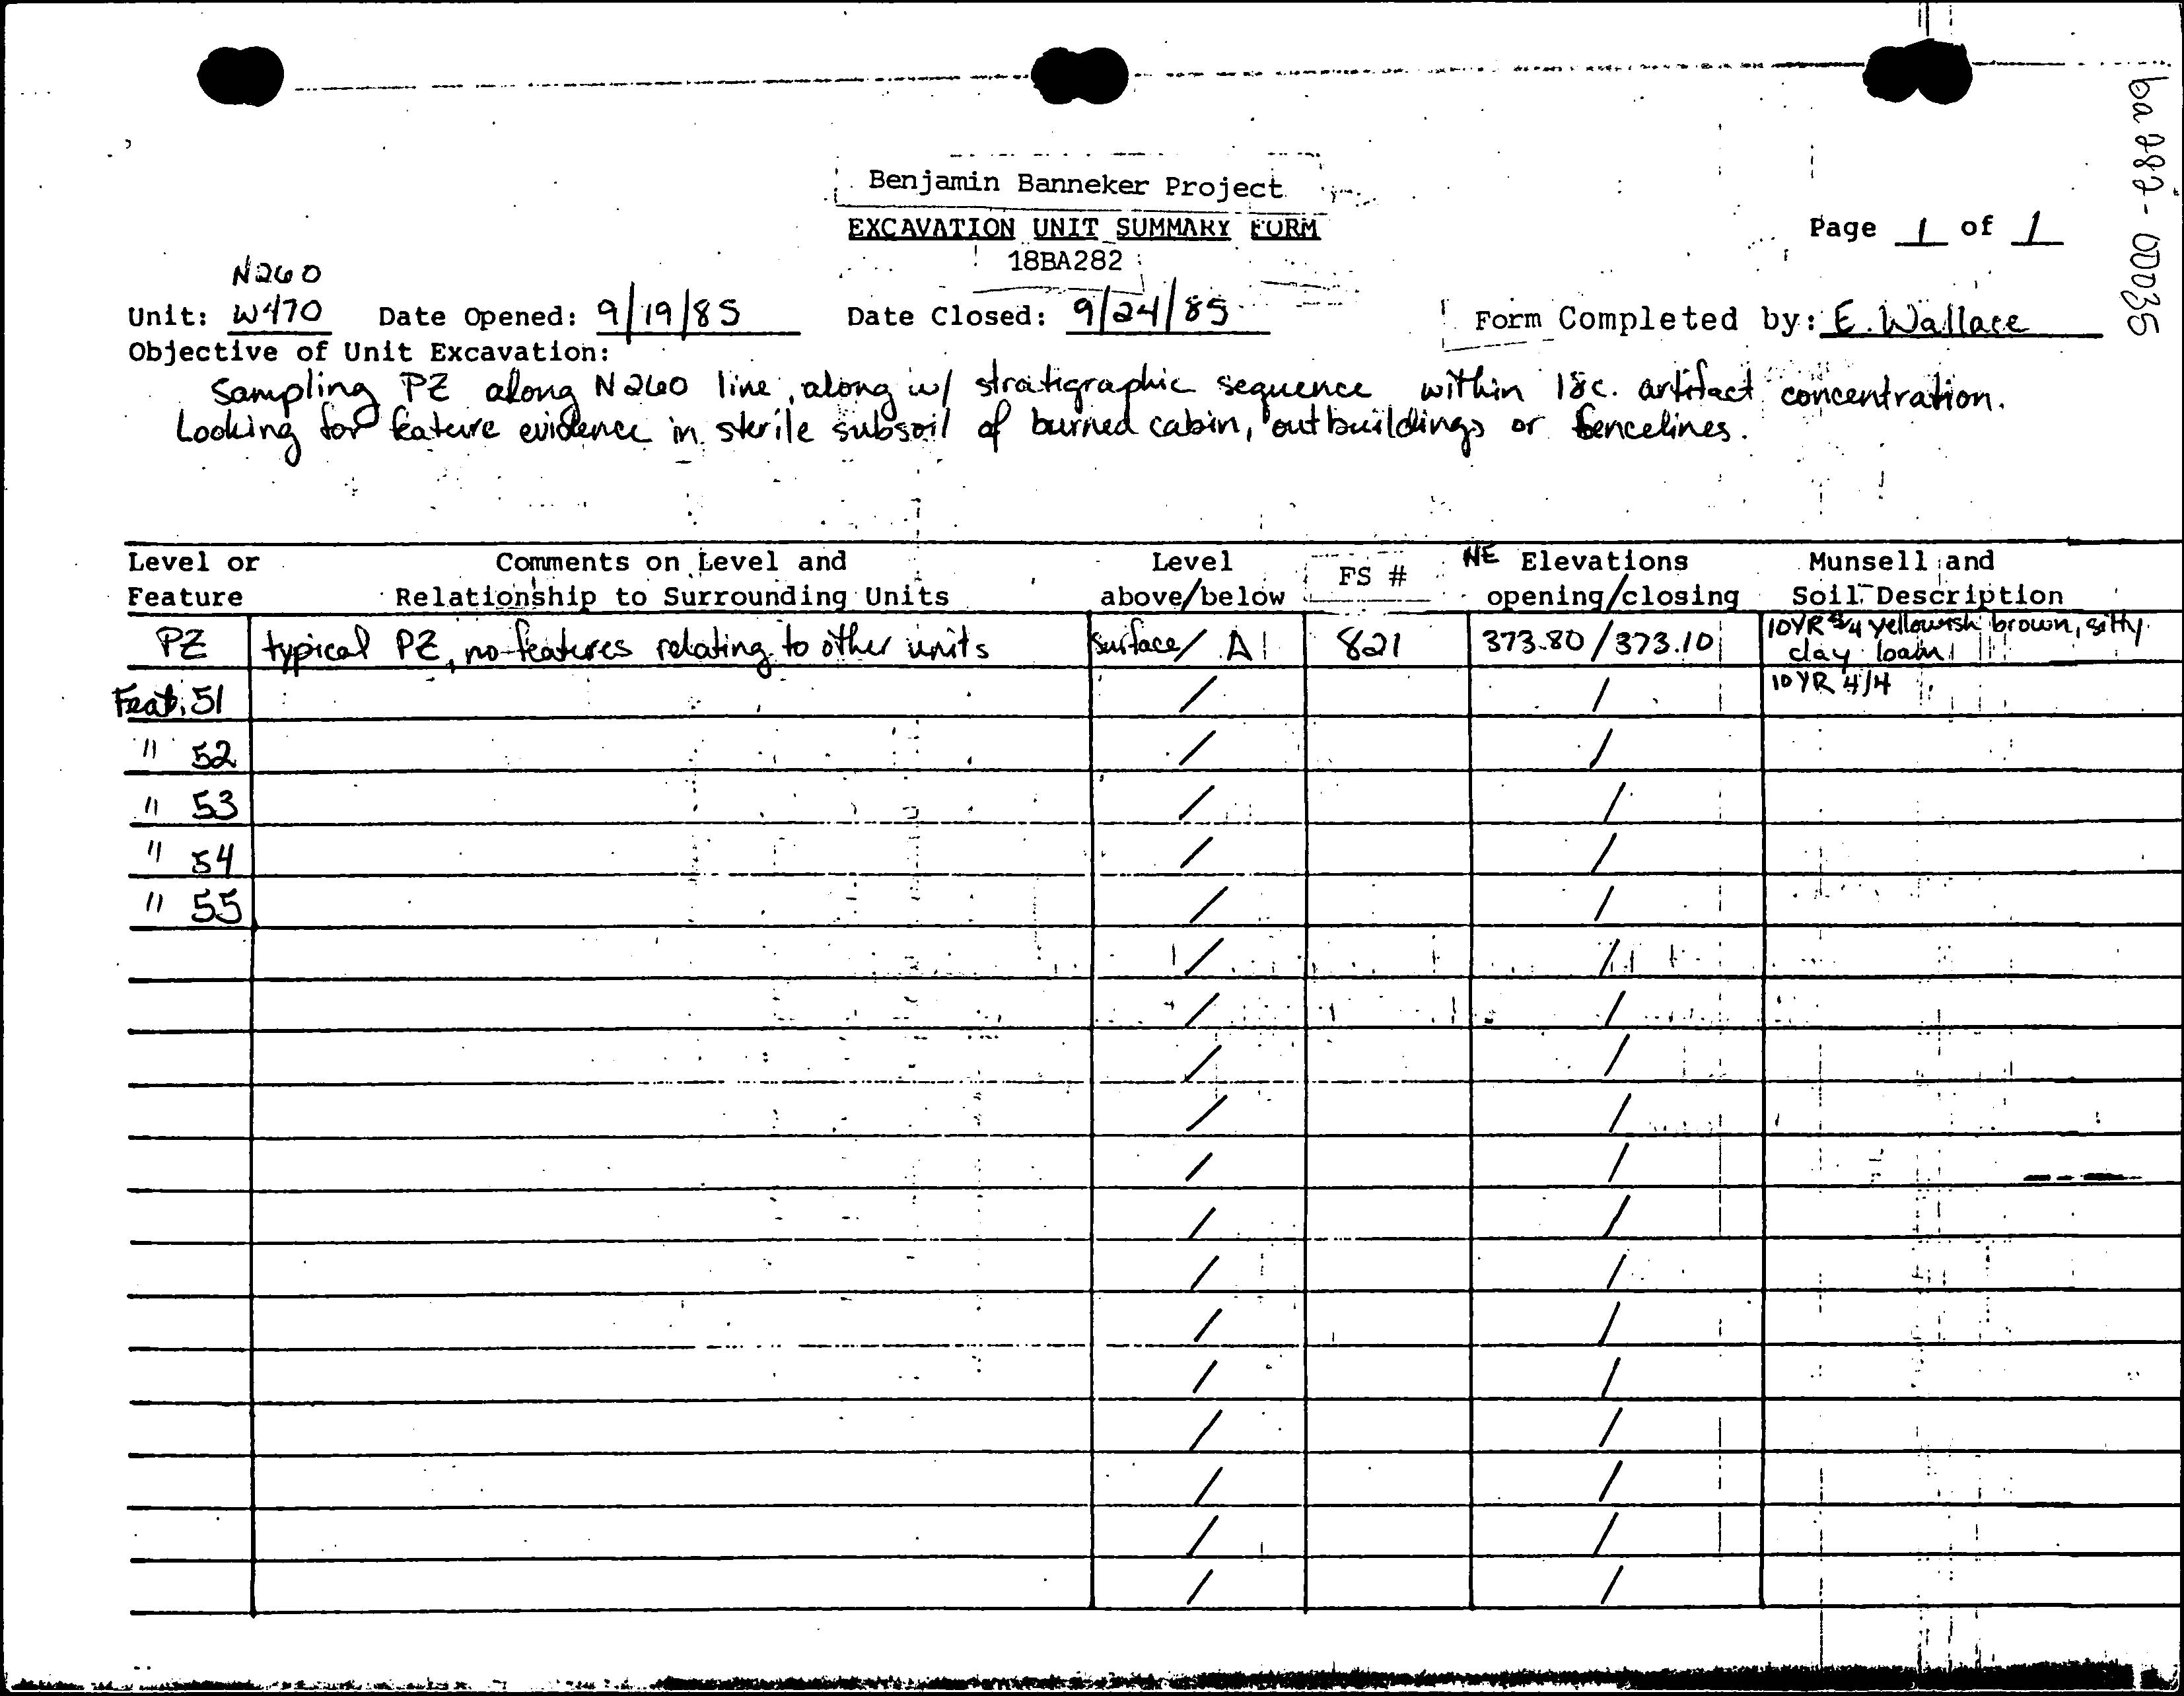 ba 282-00035
Benjamin Banneker Project
EXCAVATION UNIT SUMMARY FORM
18BA282
Page 1 of 1
N260
Unit: W470 Date Opened: 9/19/85 Date Closed: 9/24/85 Form Completed by: E. Wallace
Objective of Unit Excavation:
Sampling PZ along N260 line, along w/ stratigraphic sequence within 18c. artifact concentration.
Looking for feature evidence in sterile subsoil of burned cabin, outbuildings or fencelines.
Level or Comments on Level and Level FS # NE Elevations Munsell and
Feature Relationship to Surrounding Units above/below opening/closing Soil Description
PZ typical PZ, no features relating to other units surface/ A 821 373.80/373.10 10YR /4 yellowish brown, silty
clay loam
Feat. 51 / / 10YR 4/4
" 52 / /
" 53 / /
" 54 / /
" 55 / /
/ /
/ /
/ /
/ /
/ /
/ /
/ /
/ /
/ /
/ /
/ /
/ /
/ /